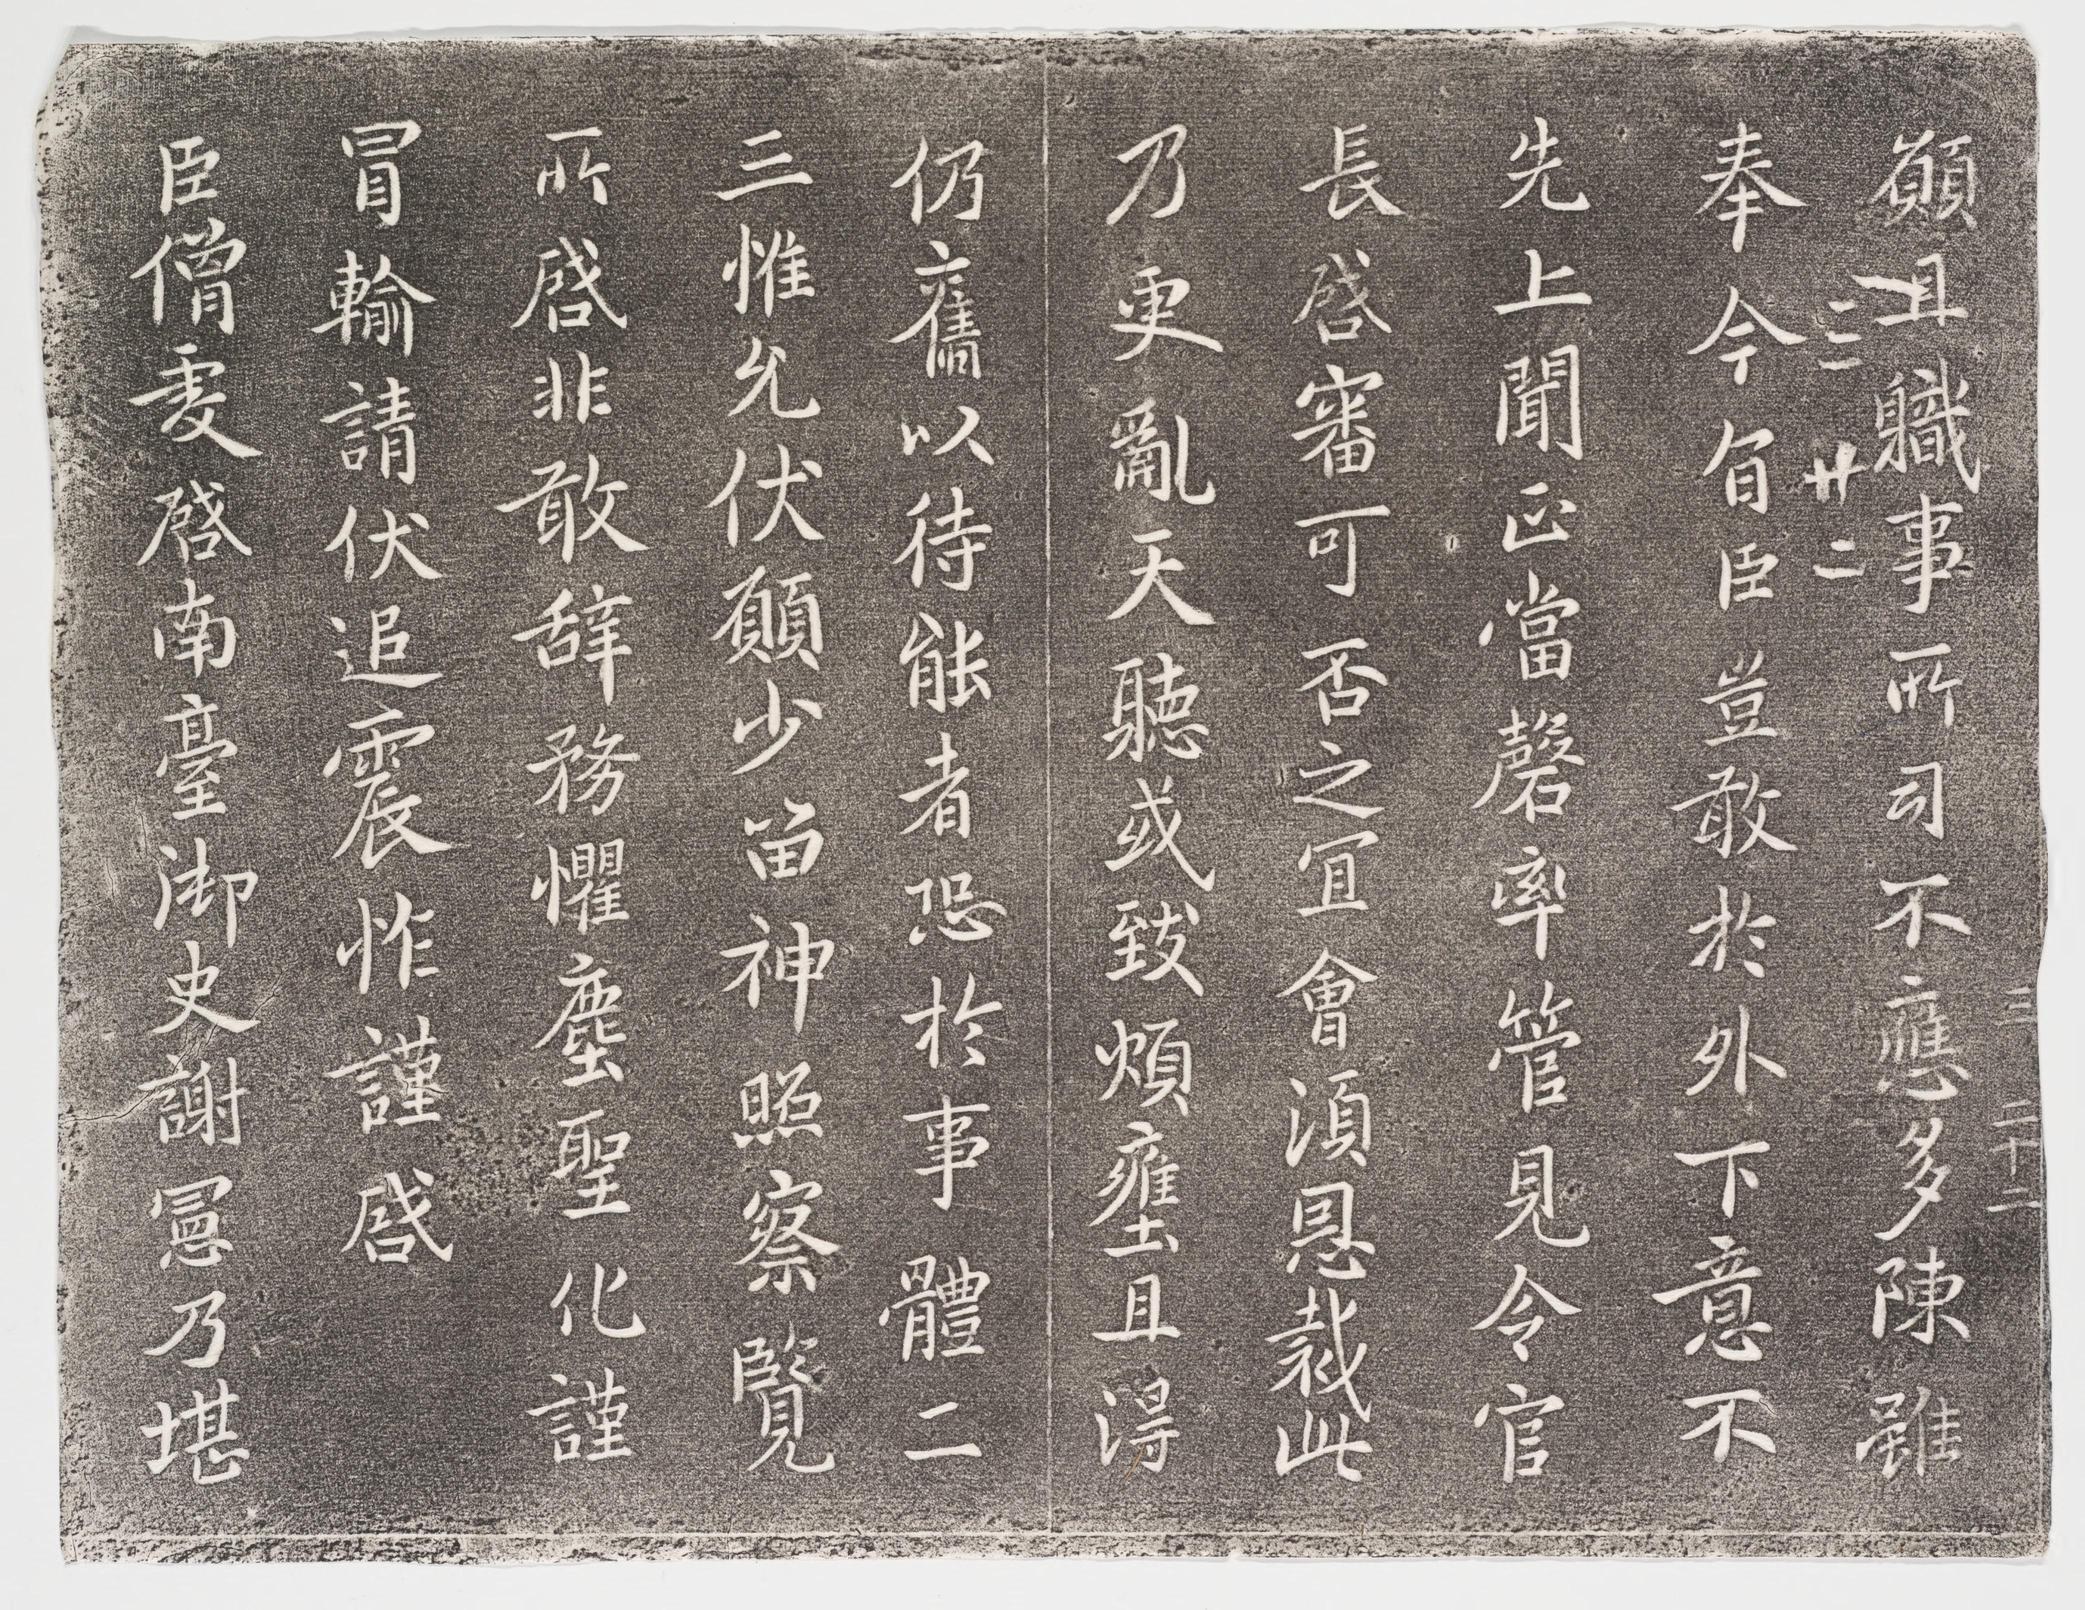 顚且職事所司不應多陳雖
奉今旨臣豈敢於外下意不
先上聞正當罄率管見令官
長啓審可否之宜會湏恩裁此
乃更亂天聽或致煩壅且淂
仍舊以待能者恐於事體二
三惟允伏願少留神照察覽
所啓非敢辞務懼塵聖化謹
冒輸請伏追震怍謹啓
臣僧虔啓南臺御史謝憲乃堪
三 廿二
三 二十二